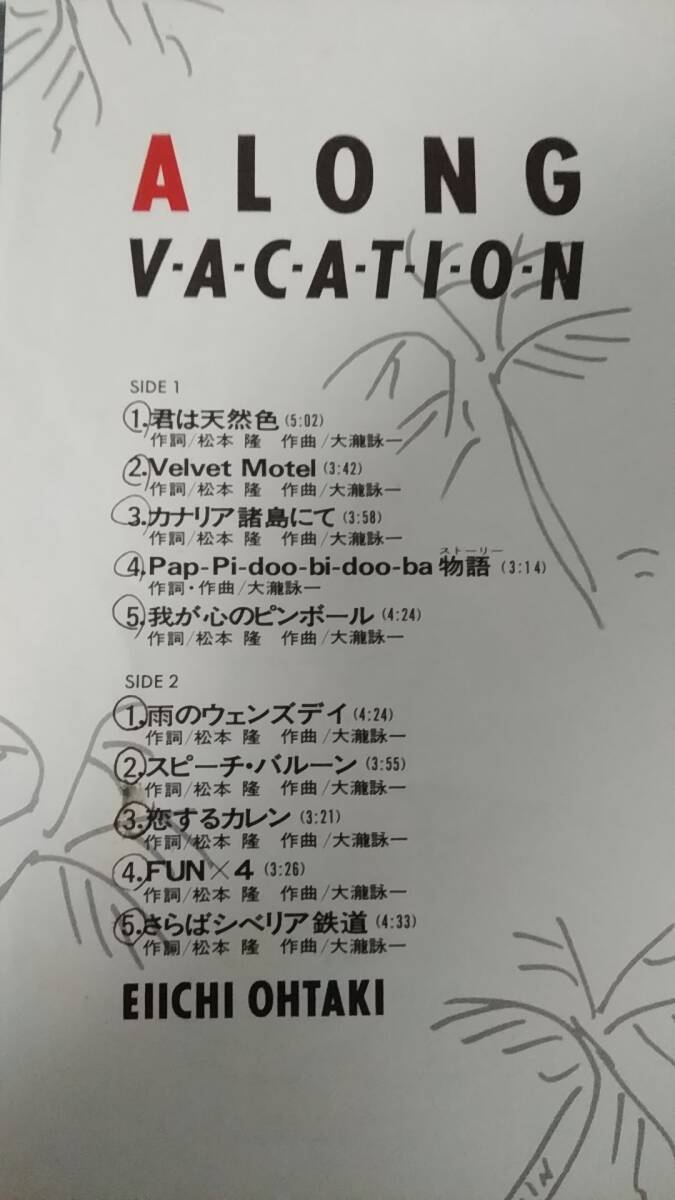 A LONG
V-A-C-A-T-I-O-N
SIDE 1
1.君は天然色(5:02)
作詞/松本 隆 作曲/大瀧詠一
2.Velvet Motel(3:42)
作詞/松本 隆 作曲/大瀧詠一
3.カナリア諸島にて(3:58)
作詞/松本 隆 作曲/大瀧詠一
ストーリー
4.Pap-Pi-doo-bi-doo-ba 物語(3:14)
作詞・作曲/大瀧詠一
5.我が心のピンボール(4:24)
作詞/松本 隆 作曲/大瀧詠一
SIDE 2
1.雨のウェンズデイ(4:24)
作詞/松本 隆 作曲/大瀧詠一
2.スピーチ・バルーン(3:55)
作詞/松本 隆 作曲/大瀧詠一
3.恋するカレン(3:21)
作詞/松本 隆 作曲/大瀧詠一
4.FUN×4(3:26)
作詞/松本 隆 作曲/大瀧詠一
5.さらばシベリア鉄道(4:33)
作詞/松本 隆 作曲/大瀧詠一
EIICHI OHTAKI